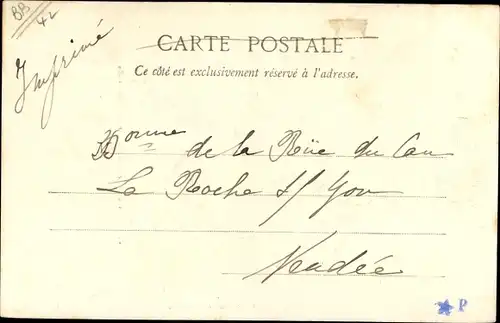 BB
42
Imprimé
CARTE POSTALE
Ce côté est exclusivement réservé à l'adresse.
de la Rüe du Cau
La Roche s/ Yon
Vendée
P